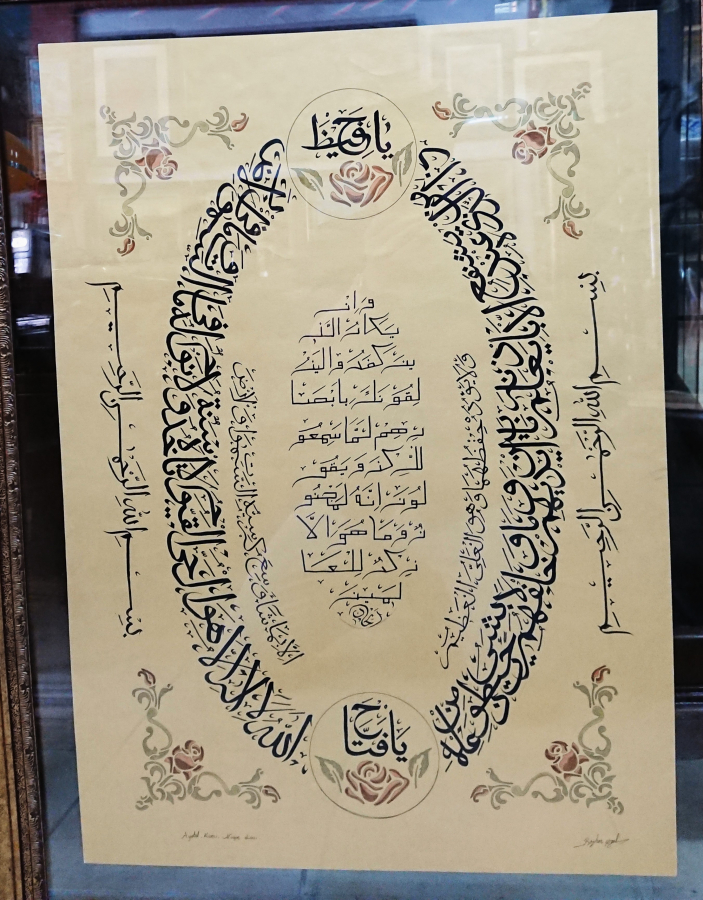 يا حفيظ
بسم الله الرحمن الرحيم
الله لا اله الا هو الحي القيوم لا تأخذه سنة ولا نوم له ما في السموات وما في الارض
من ذا الذي يشفع عنده الا باذنه يعلم ما بين ايديهم وما خلفهم ولا يحيطون بشيء من علمه
الا بما شاء وسع كرسيه السموات والارض
ولا يؤده حفظهما وهو العلي العظيم
وان
يكاد الذ
ين كفروا ليز
لقونك بابصا
رهم لما سمعو
الذكر ويقو
لون انه لمجنو
ن وما هو الا
ذكر للعا
لمين
بسم الله الرحمن الرحيم
يا فتاح